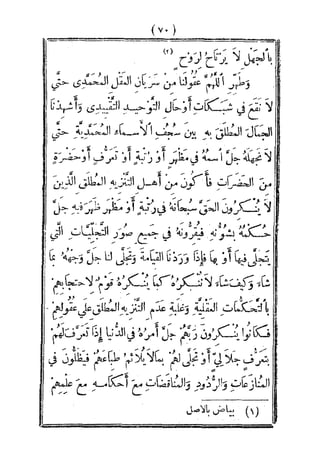 (٧٠)
بالجهل لا يرتاح لروح (٢)
وطهر اللهم عقولنا من سريان العقل المحمدى حتى
لا نقع في شبكات أوحال التوحيد التقييدى وأشهدنا
الجمال المطلق به بين سجف الأسماء المحمدية حتى
لا نجهله جل اسمه في مظهر أو رتبة أو تعرف أو حضرة
من الحضرات فأكون من أهل التنزيه المطلق الذين
لا ينكرون الحق سبحانه في رتبة أو مظهر ظهر فيه جل
حكمه بشؤنه فيقرونه في جميع صور التجليات التي
يتجلى فيها أو بها فإذا وردنا القيامة وتجلى لنا جل وجهه بما
شاء وكيف شاء لا ننكره كما ينكره قوم لاحتجابهم
بالتحكمات العقلية وغلبة عدم التنزيه المطلق على عقولهم
فكانوا ينكرون ربهم جل أمره في الدنيا إذا تعرف لهم
بتعرف جلالي أو تجلى لهم بما لا يلائم طباعهم فيظلون في
المنازعات والردود والمناقضات مع أحكامه مع علمهم
(١) بياض بالاصل